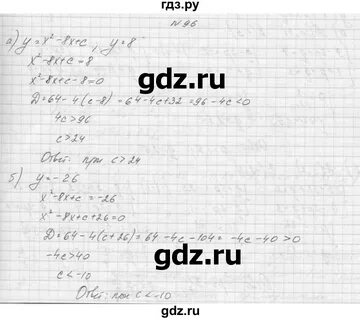 N 96
а) y = x² - 8x + c, y = 8
x² - 8x + c = 8
x² - 8x + c - 8 = 0
D = 64 - 4(c - 8) = 64 - 4c + 32 = 96 - 4c < 0
4c > 96
c > 24
Ответ: при c > 24
б) y = -26
x² - 8x + c = -26
x² - 8x + c + 26 = 0
D = 64 - 4(c + 26) = 64 - 4c - 104 = -4c - 40 > 0
-4c > 40
c < -10
Ответ: при c < -10
gdz.ru
gdz.ru
gdz.ru
gdz.ru